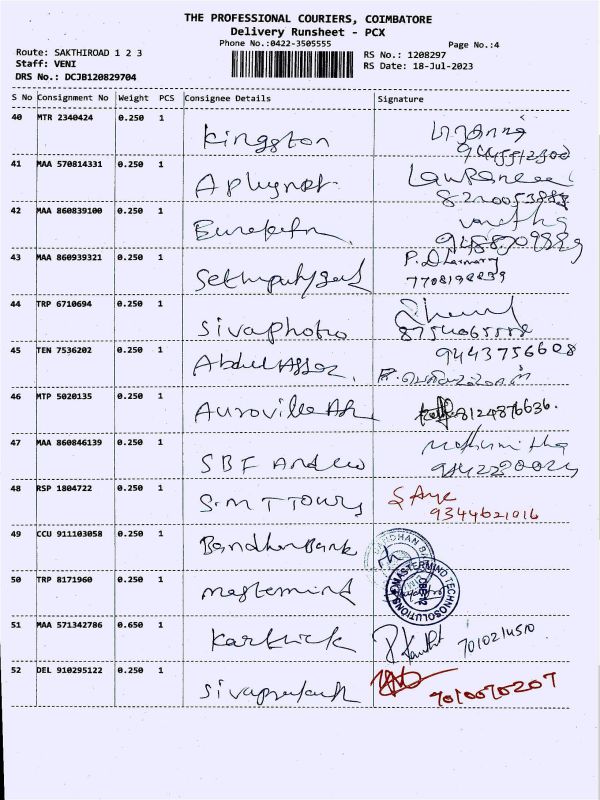 THE PROFESSIONAL COURIERS, COIMBATORE
Delivery Runsheet - PCX
Phone No.:0422-3505555
Page No.:4
Route: SAKTHIROAD 1 2 3
Staff: VENI
DRS No.: DCJB120829704
RS No.: 1208297
RS Date: 18-Jul-2023
S No Consignment No Weight PCS Consignee Details Signature
40 MTR 2340424 0.250 1 Kingston
41 MAA 570814331 0.250 1
42 MAA 860839100 0.250 1
43 MAA 860939321 0.250 1
7708198839
44 TRP 6710694 0.250 1 Sivaphoto
45 TEN 7536202 0.250 1 Abdul
9443756608
46 MTP 5020135 0.250 1 Auroville
8124876636.
47 MAA 860846139 0.250 1 SBF
48 RSP 1804722 0.250 1 S.M T Tours
9344621016
49 CCU 911103058 0.250 1 Bandhan Bank
50 TRP 8171960 0.250 1 mastermind
MASTERMIND TECHNOSOLUTIONS
51 MAA 571342786 0.650 1 Karthick
7010214510
52 DEL 910295122 0.250 1
7010070207